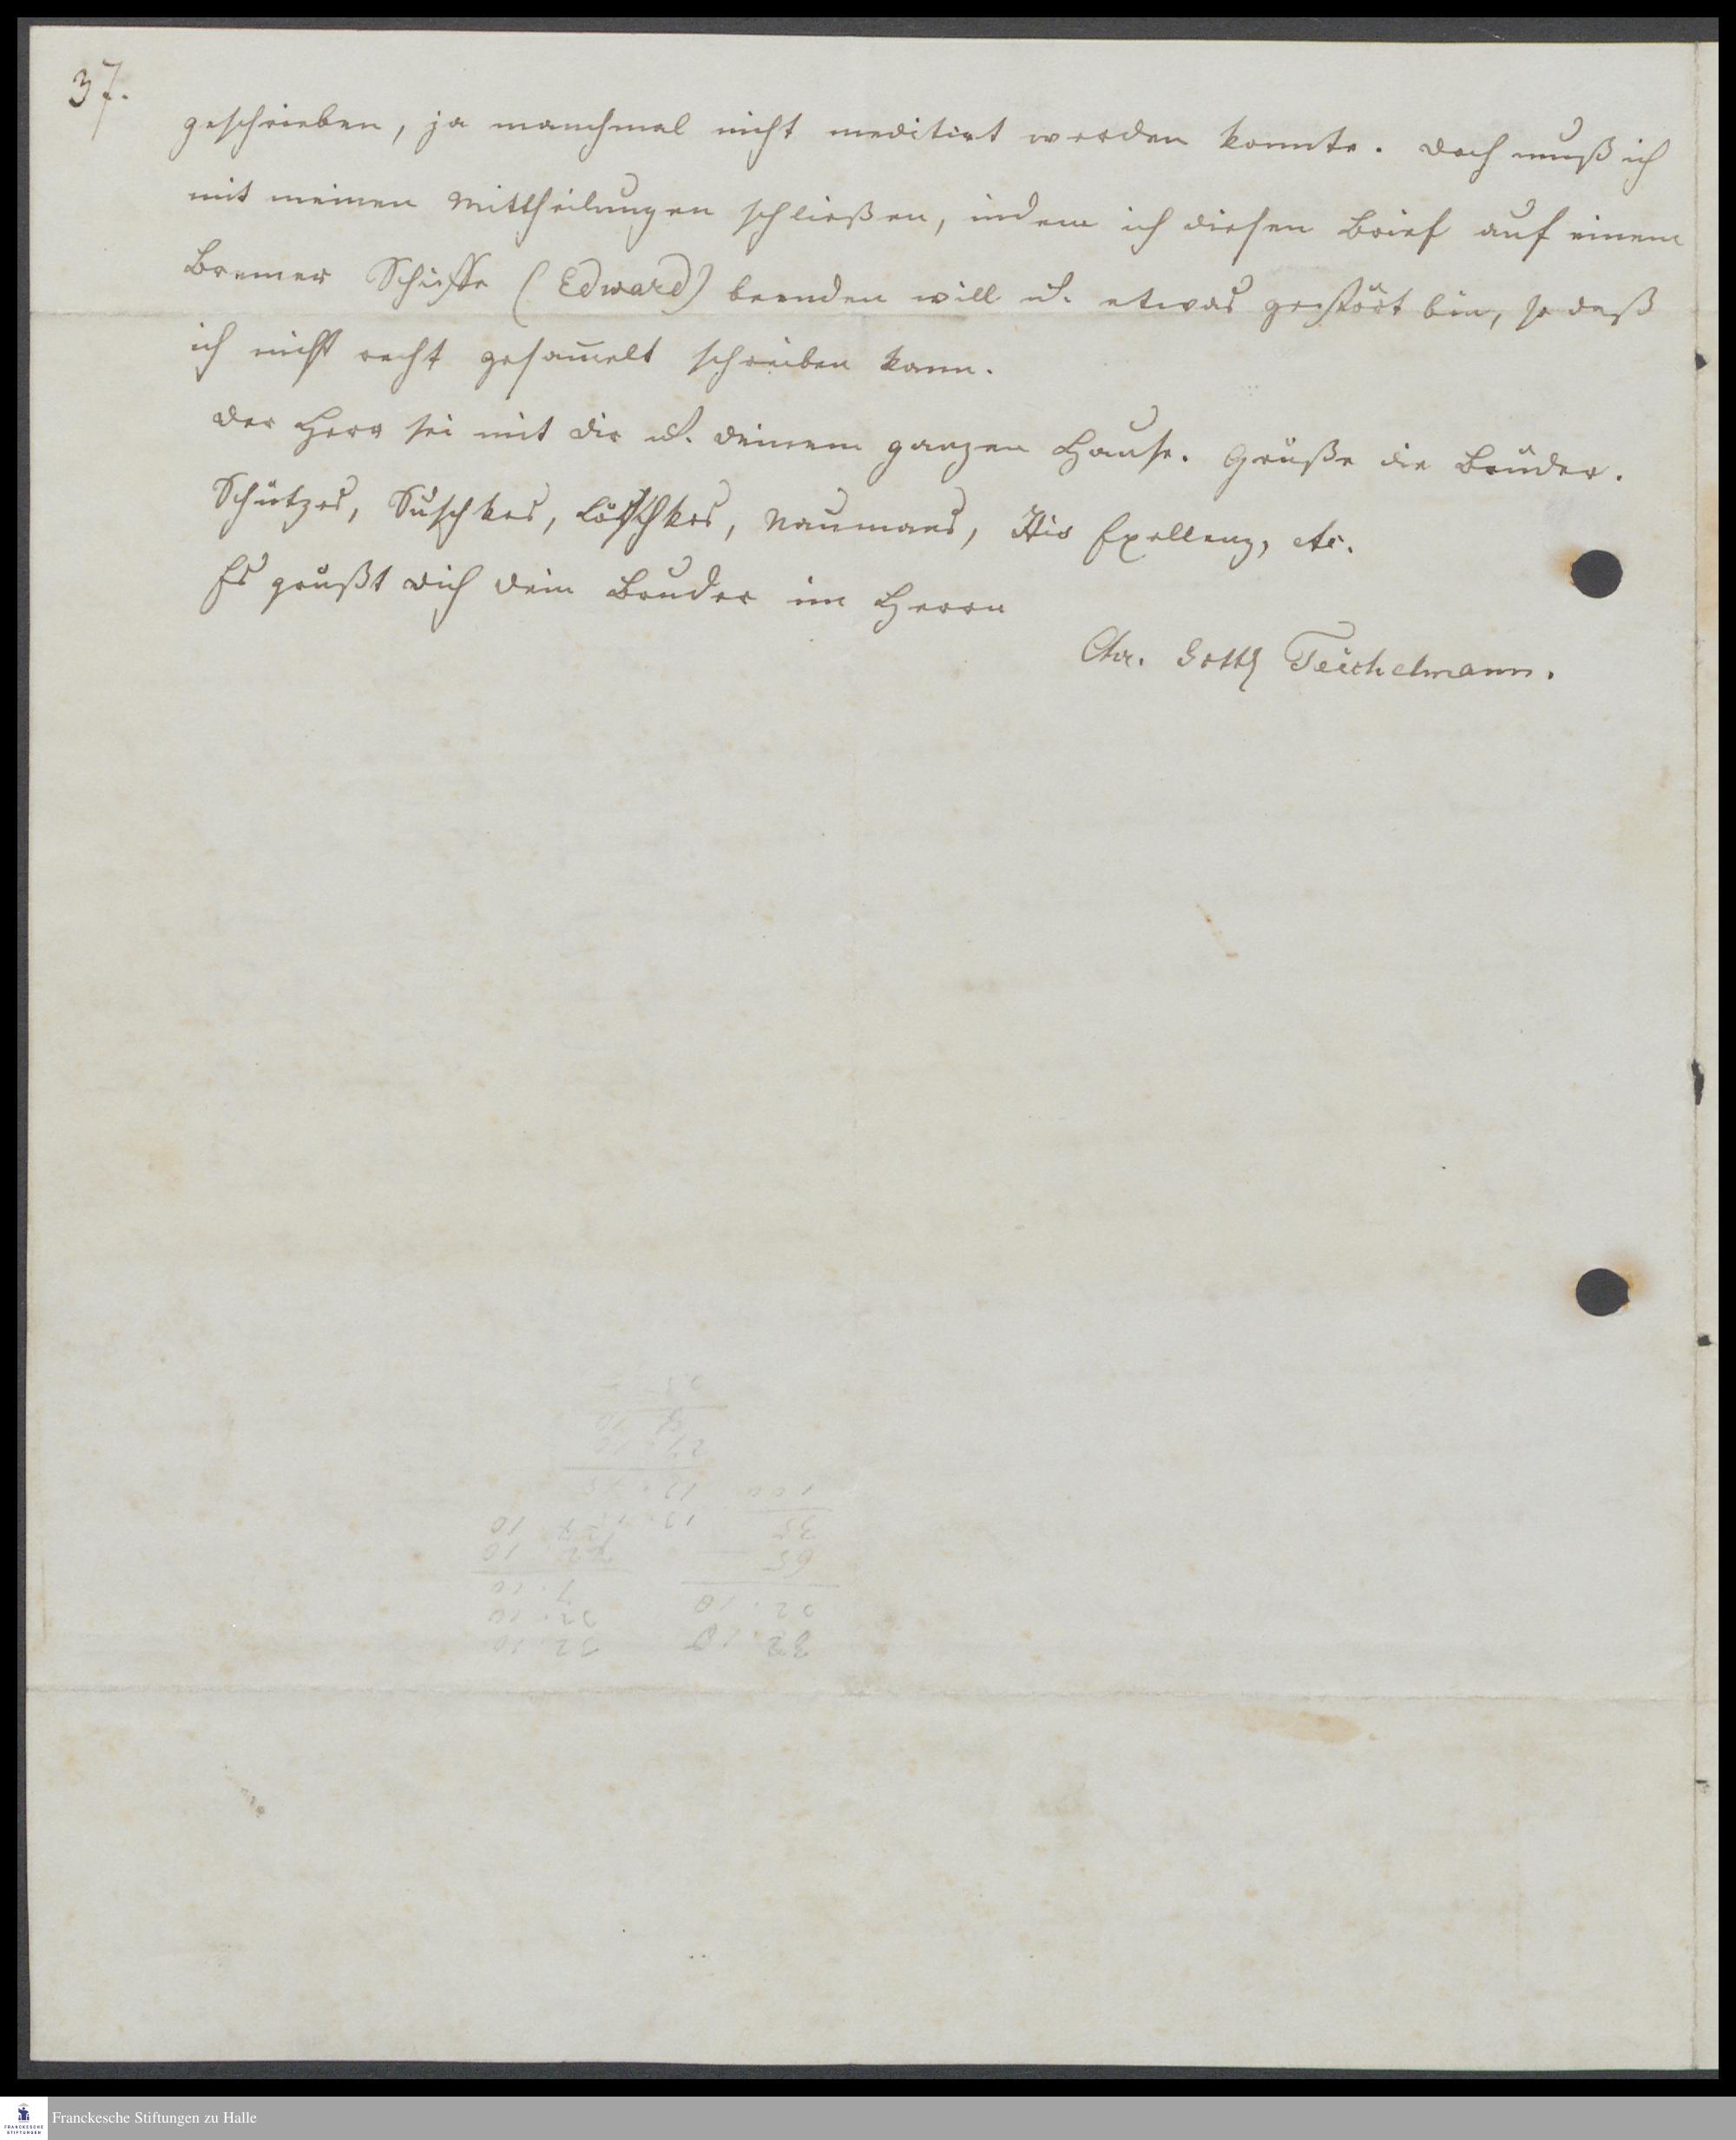 37.
geschrieben, ja manchmal nicht meditirt werden konnte. Doch muß ich
mit meinen Mittheilungen schließen, indem ich diesen Brief auf einem
Bremer Schiffe (Edward) beenden will u. etwas gestört bin, so daß
ich nicht recht gesam̅elt schreiben kann.
Der Herr sei mit dir u. deinem ganzen Hause. Grüße die Brüder.
Schützes, Suschkes, Löschkes, Naumans, His Exellenz, etc.
Es grüßt dich dein Bruder im Herrn
Chr. Gottl Teichelmann.
32. 10 32. 10
32. 10
7. 10
65
35
100
Franckesche Stiftungen zu Halle
FRANCKESCHE
STIFTUNGEN